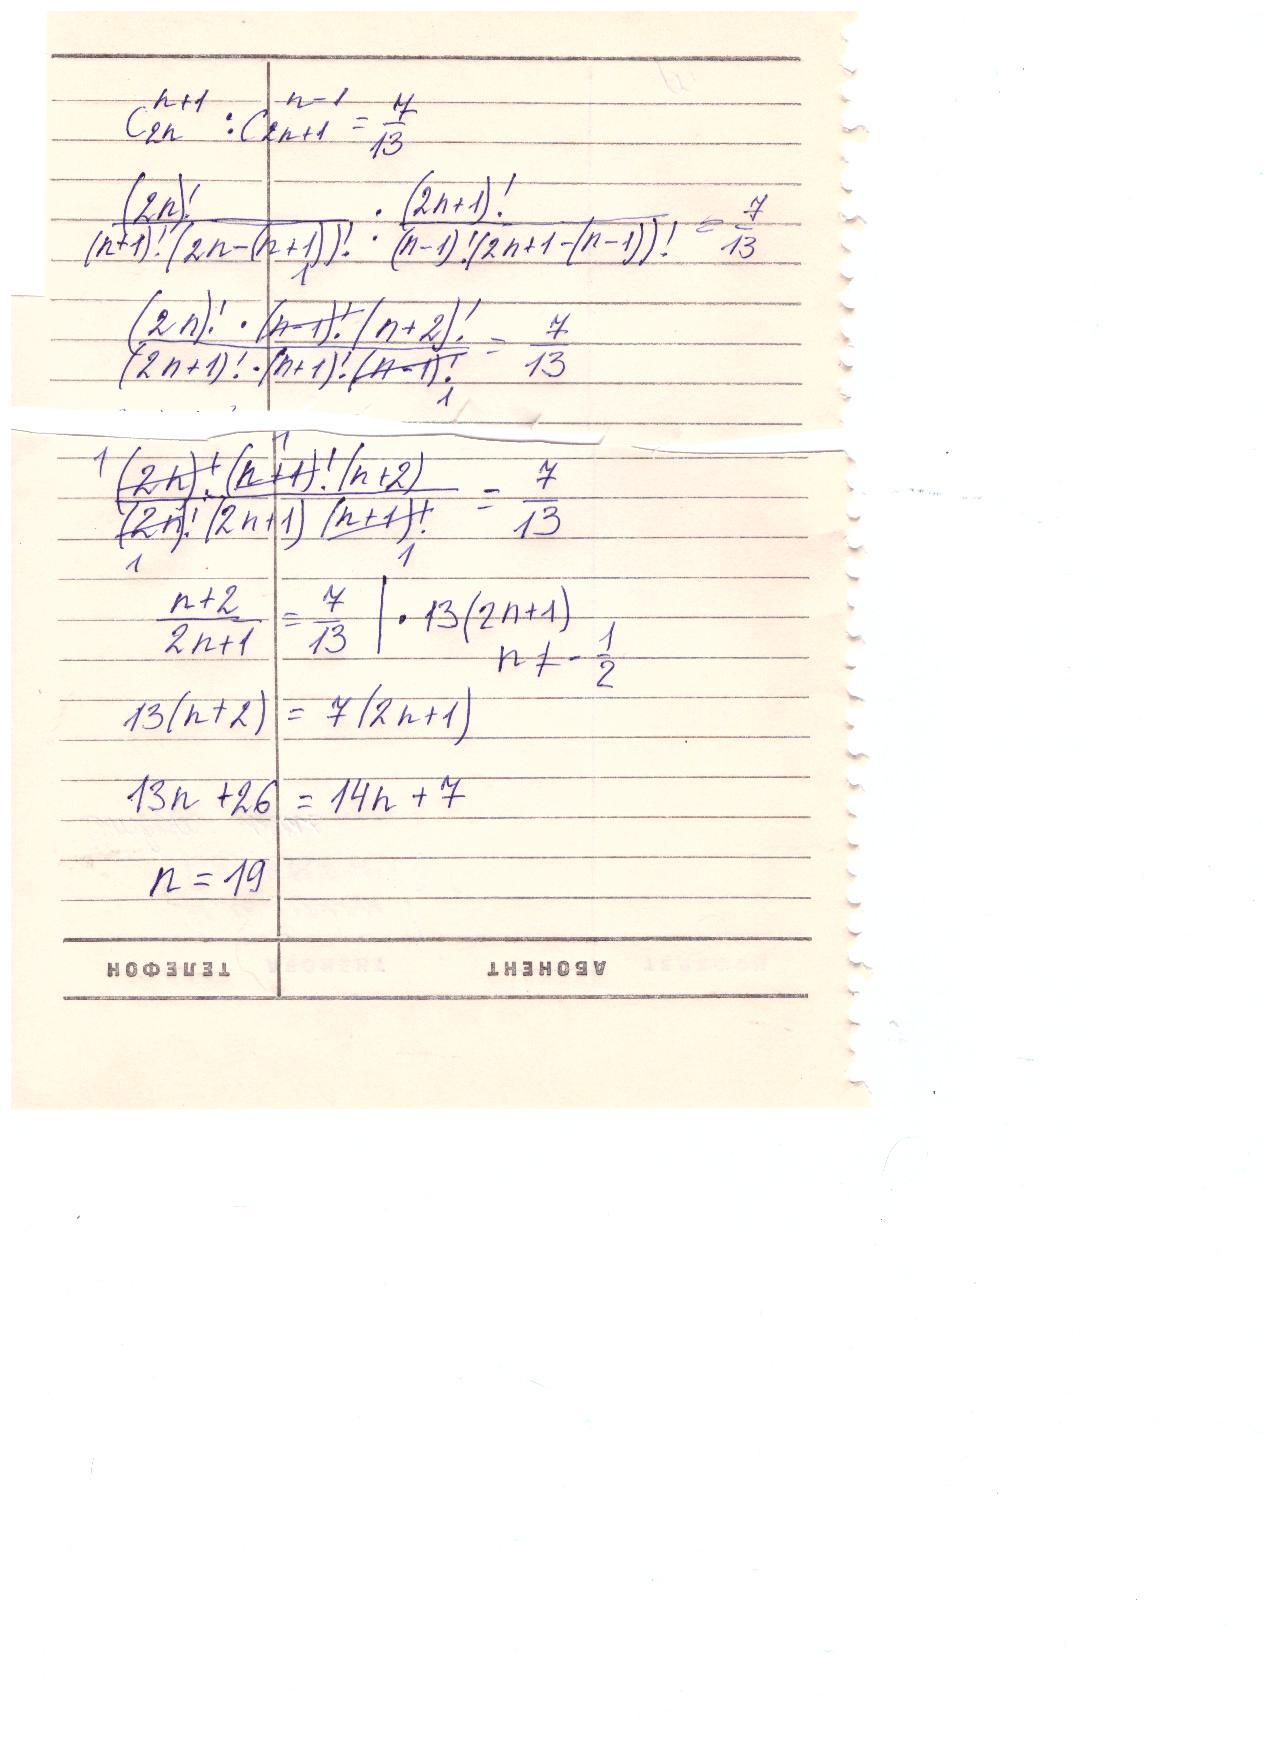 C_{2n}^{n+1} : C_{2n+1}^{n-1} = 7/13
(2n)!/((n+1)!(2n-(n+1))!) : (2n+1)!/((n-1)!(2n+1-(n-1))!) = 7/13
1
(2n)!·(n-1)!(n+2)!/((2n+1)!·(n+1)!(n-1)!) = 7/13
1
1 1
(2n)!·(n+1)!(n+2)/((2n)!(2n+1)(n+1)!) = 7/13
1 1
(n+2)/(2n+1) = 7/13 | · 13(2n+1)
n ≠ -1/2
13(n+2) = 7(2n+1)
13n+26 = 14n+7
n = 19
ТЕЛЕФОН АБОНЕНТ